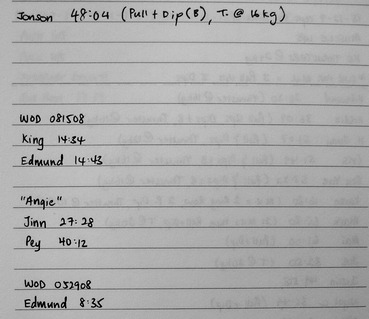 Jonson 48:04 (Pull + Dip (B), T. @ 16kg)
WOD 081508
King 14:34
Edmund 14:43
"Angie"
Jinn 27:28
Pey 40:12
WOD 052908
Edmund 8:35